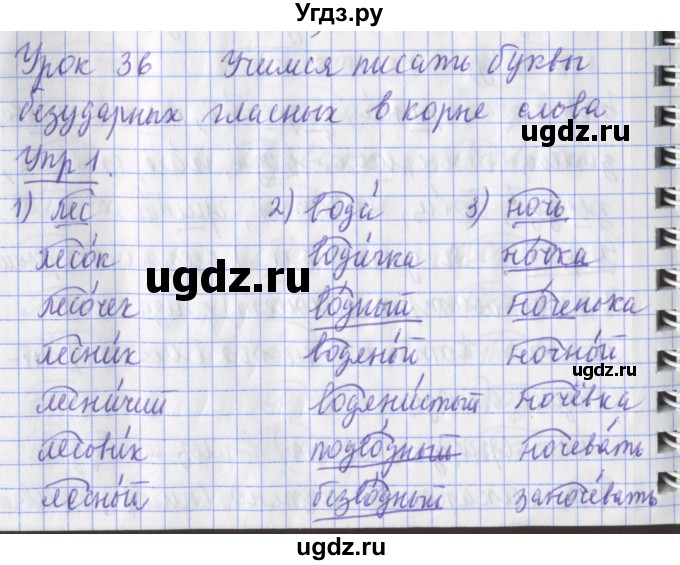 Угдз.ру
Урок 36 Учимся писать буквы
безударных гласных в корне слова
ugdz.ru
Упр 1.
1) лес 2) вода́ 3) ночь
лесо́к води́чка но́чка
ugdz.ru
лесо́чек во́дный но́ченька
лесни́к водяно́й ночно́й
лесни́чий водяни́стый ночёвка
лесови́к подво́дный ночева́ть
лесно́й безво́дный заноче́вать
ugdz.ru ugdz.ru
ugdz.ru